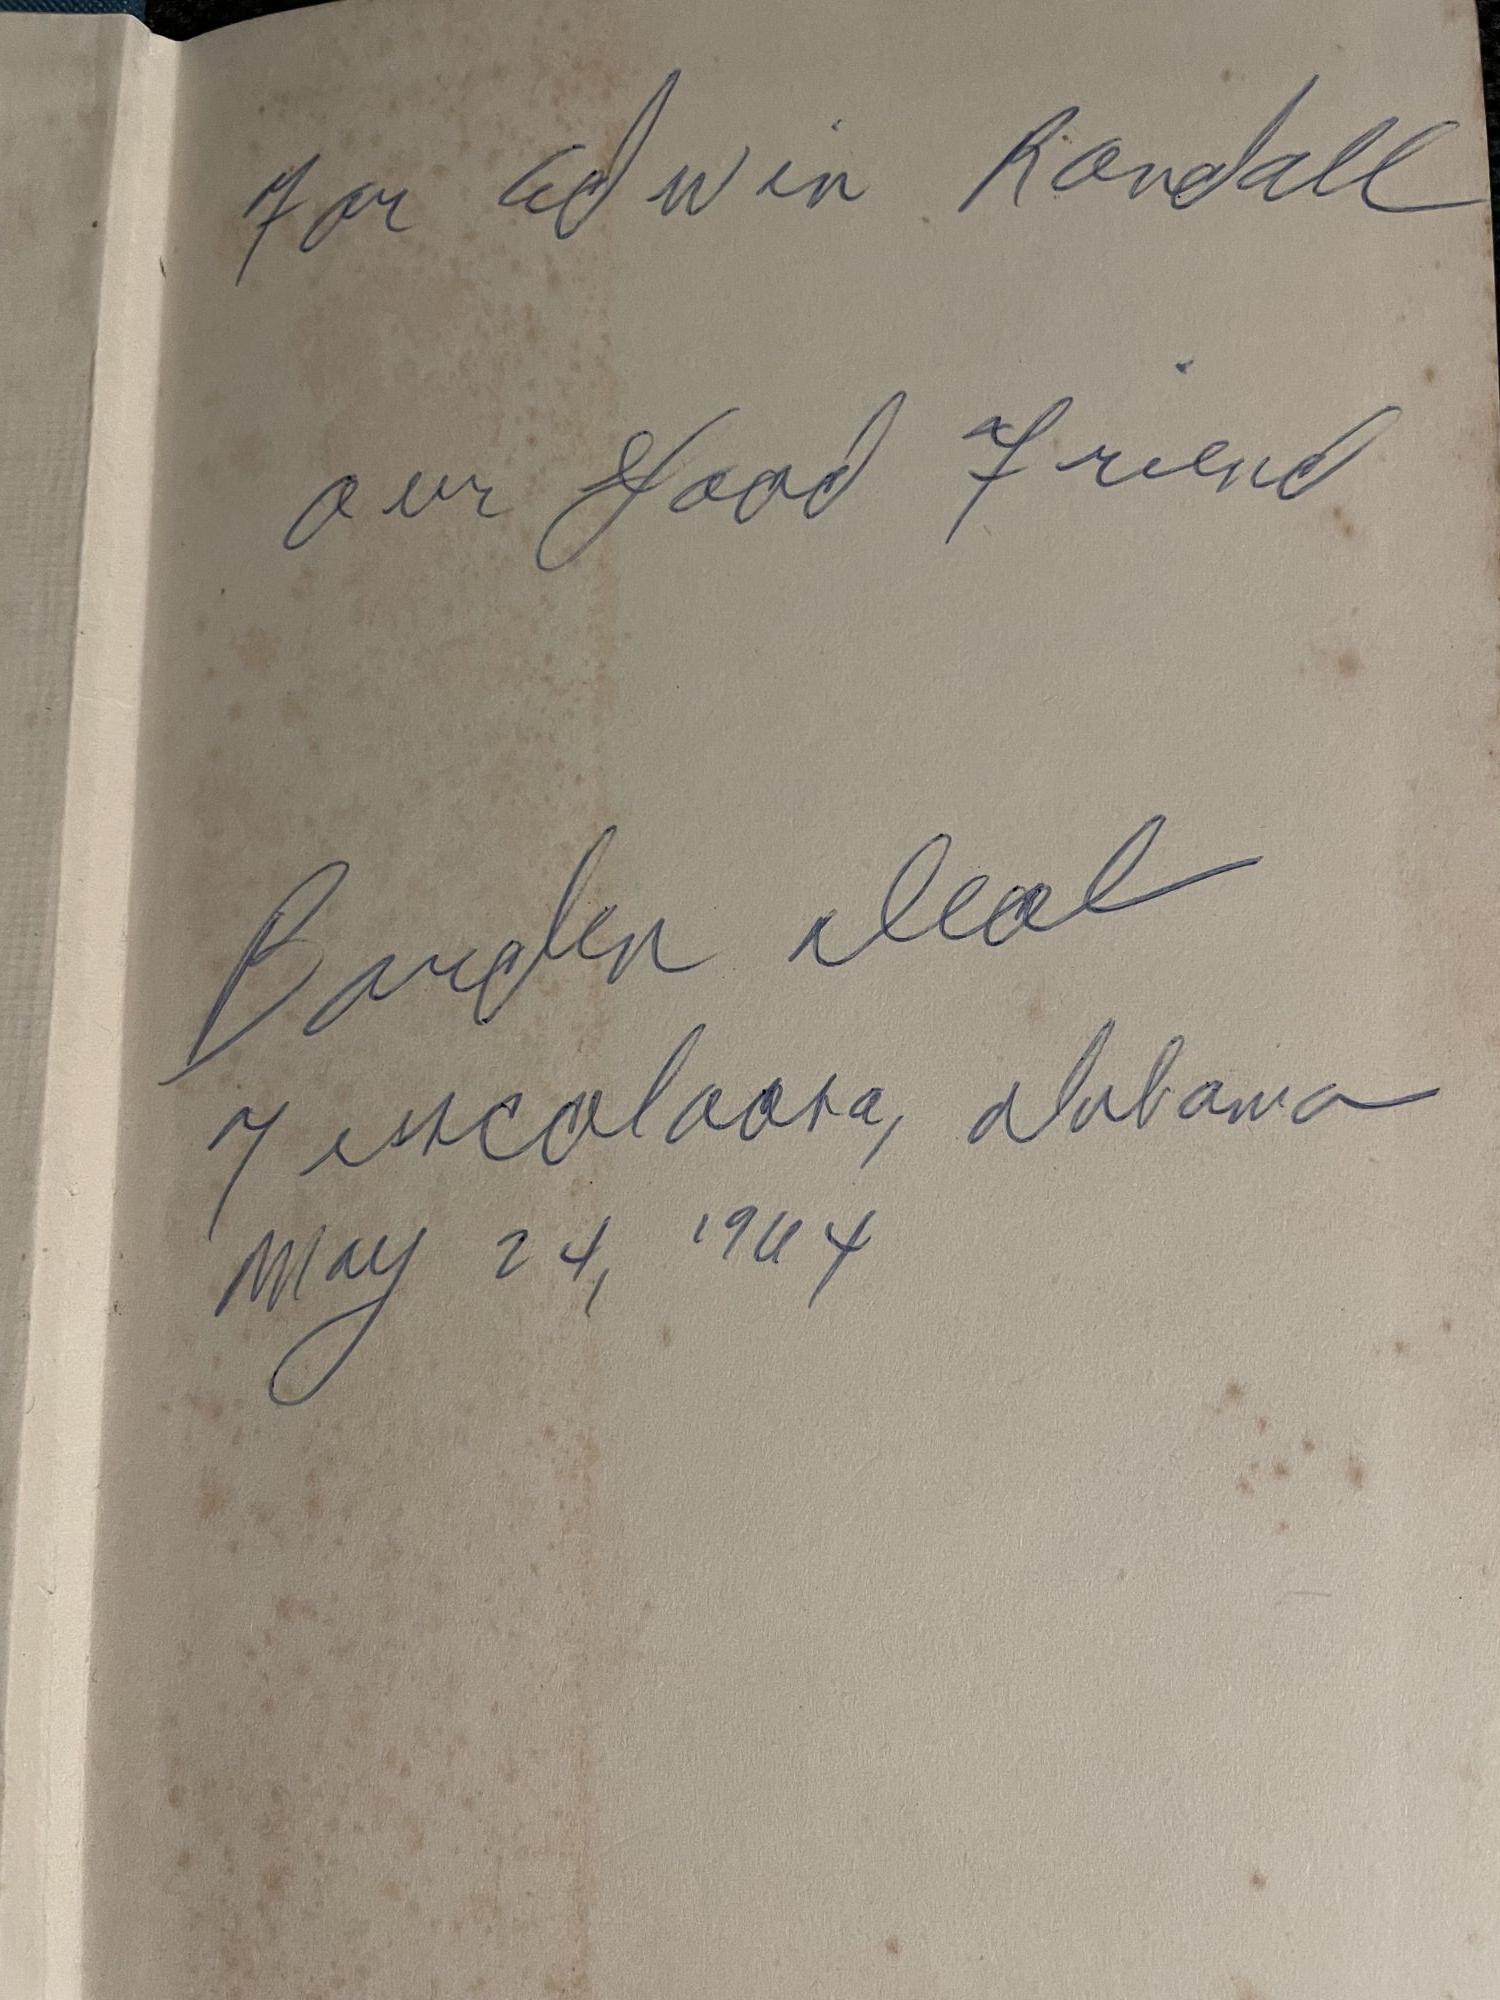 For Edwin Randall
our Good Friend
Borden Deal
Tuscaloosa, Alabama
May 24, 1964